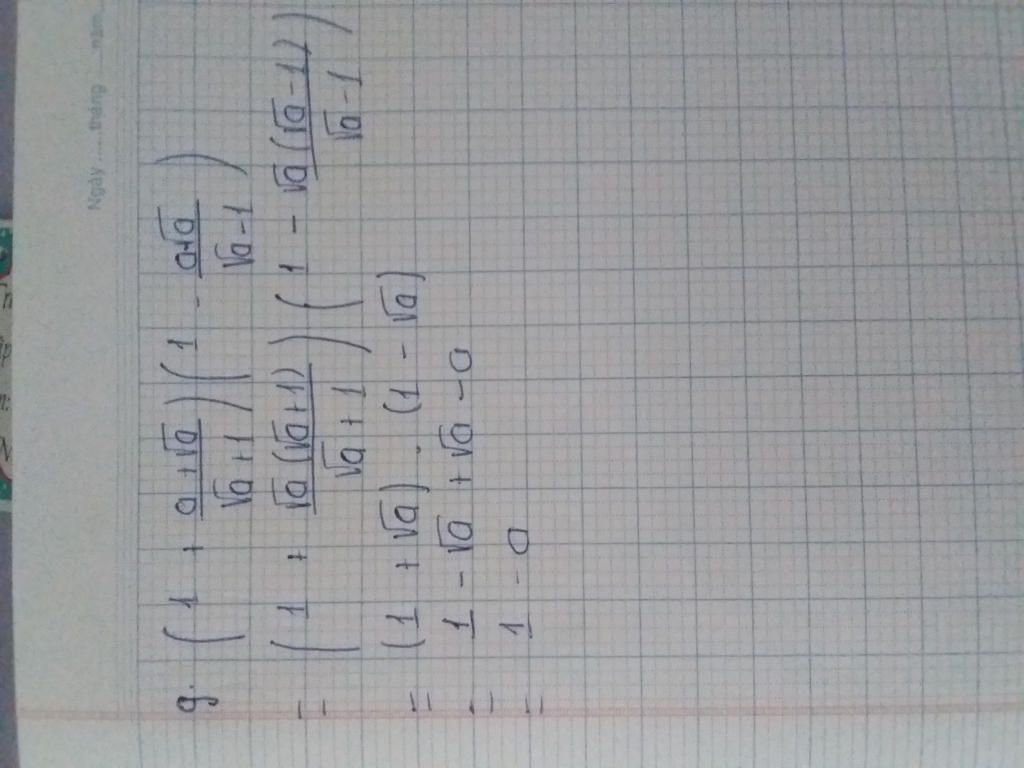 Ngày.....tháng.....năm
g. (1 + (a+√a)/(√a+1)) (1 - (a-√a)/(√a-1))
= (1 + √a(√a+1)/(√a+1)) (1 - √a(√a-1)/(√a-1))
= (1 + √a) . (1 - √a)
= 1 - √a + √a - a
= 1 - a